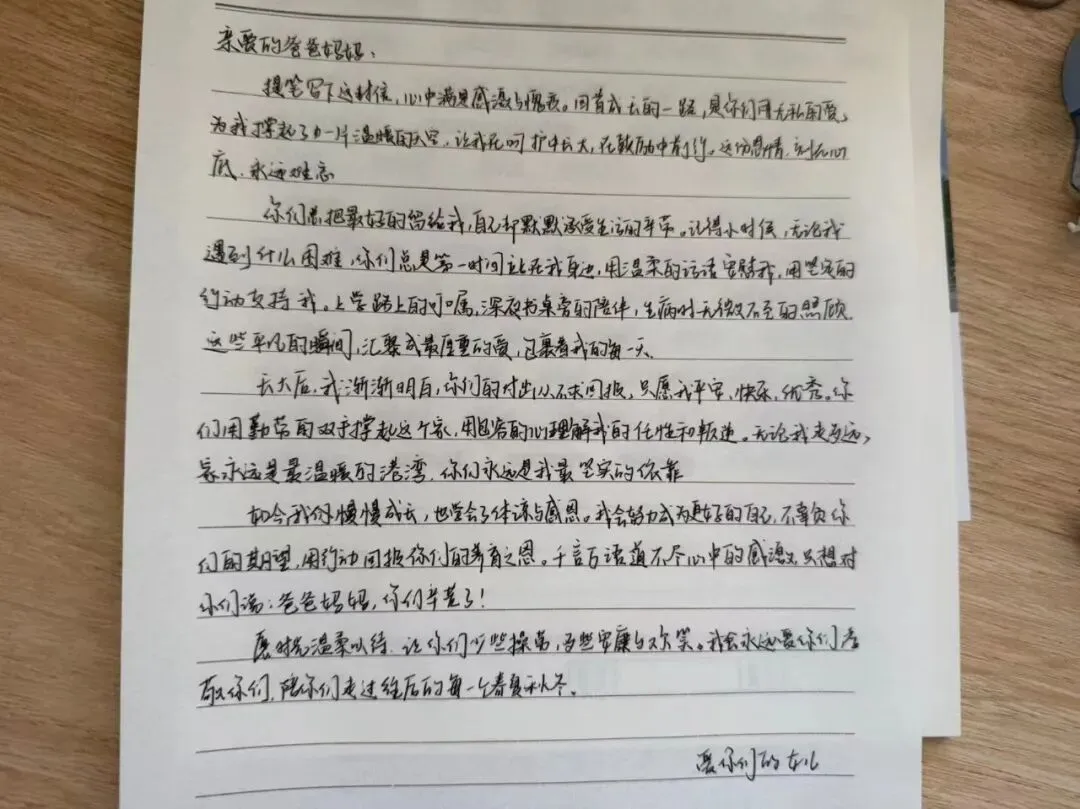 亲爱的爸爸妈妈：
提笔写下这封信，心中满是感激与愧疚。回首成长的一路，是你们用无私的爱，
为我撑起了一片温暖的天空，让我在呵护中长大，在鼓励中前行。这份恩情，刻在心
底，永远难忘
你们总把最好的留给我，自己却默默承受生活的辛劳。记得小时候，无论我
遇到什么困难，你们总是第一时间站在我身边，用温柔的话语安慰我，用坚定的
行动支持我。上学路上的叮嘱，深夜书桌旁的陪伴，生病时无微不至的照顾，
这些平凡的瞬间，汇聚成最厚重的爱，包裹着我的每一天。
长大后，我渐渐明白，你们的付出从不求回报，只愿我平安、快乐、优秀。你
们用勤劳的双手撑起这个家，用包容的心理解我的任性和叛逆。无论我走多远，
家永远是最温暖的港湾，你们永远是我最坚实的依靠
如今我慢慢成长，也学会了体谅与感恩。我会努力成为更好的自己，不辜负你
们的期望，用行动回报你们的养育之恩。千言万语道不尽心中的感激，只想对
你们说：爸爸妈妈，你们辛苦了！
愿时光温柔以待，让你们少些操劳，多些安康与欢笑。我会永远爱你们，孝
敬你们，陪你们走过往后的每一个春夏秋冬。
爱你们的女儿